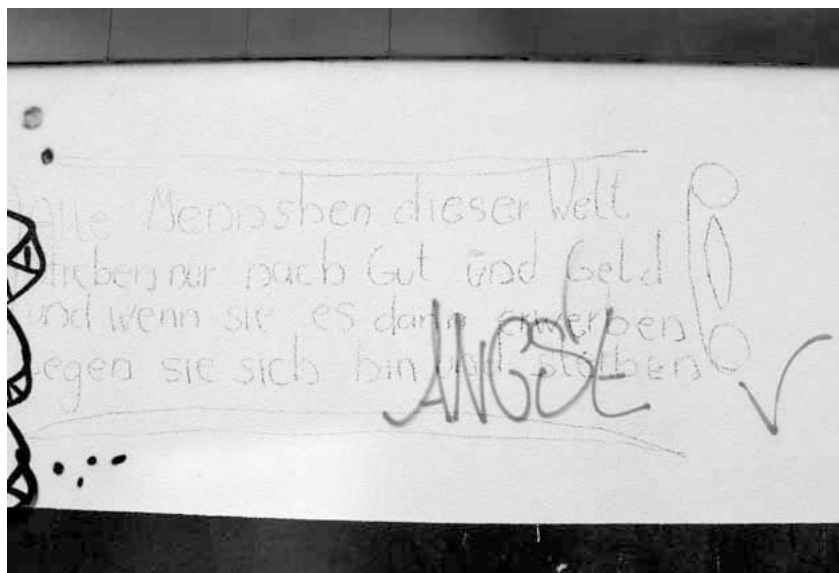 Alle Mennshen dieser Welt
streben nur nach Gut und Geld
und wenn sie es dann erwerben
legen sie sich hin und sterben
ANGST